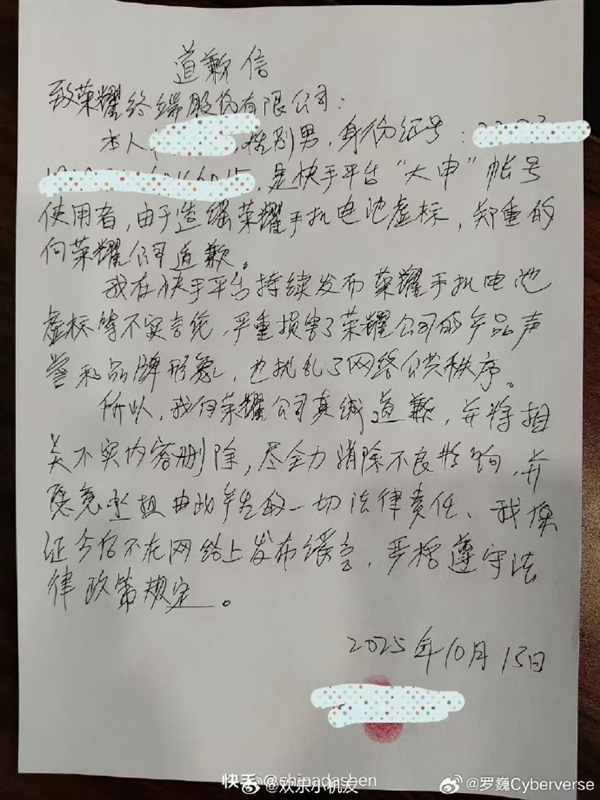 道歉信
致荣耀终端股份有限公司：
本人 性别男，身份证号：
是快手平台“大申”帐号
使用者，由于造谣荣耀手机电池虚标，郑重的
向荣耀公司道歉。
我在快手平台持续发布荣耀手机电池
虚标等不实言论，严重损害了荣耀公司的产品声
誉和品牌形象，也扰乱了网络公共秩序。
所以，我向荣耀公司真诚道歉，并将相
关不实内容删除，尽全力消除不良影响，并
愿意承担由此产生的一切法律责任、我保
证今后不在网络上发布谣言，严格遵守法
律政策规定。
2025年10月13日
快手 @chinadashen
@欢乐小机友
@罗巍Cyberverse